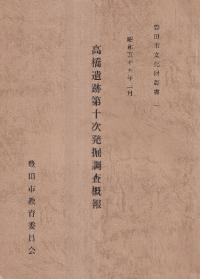 豊田市文化財叢書 一
昭和五十五年一月
高橋遺跡第十次発掘調査概報
豊田市教育委員会